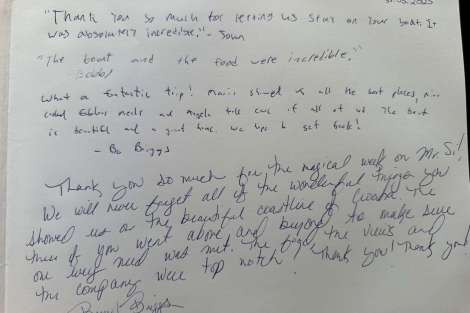 "Thank you so much for letting us stay on your boat. It
was absolutely incredible." - John
"The boat and the food were incredible."
- Bobby
What a fantastic trip! showed us all the best places,
cooked meals and took care of all of us. The boat
is beautiful and a great time. We hope to be back!
- Briggs
Thank you so much for the magical week on Mr. Si!
We will never forget all of the wonderful things you
showed us on the beautiful coastline of Croatia. The
you went above and beyond to make sure
our every need was met. The food, the views and
the company were top notch! Thank you! Thank you!
Briggs